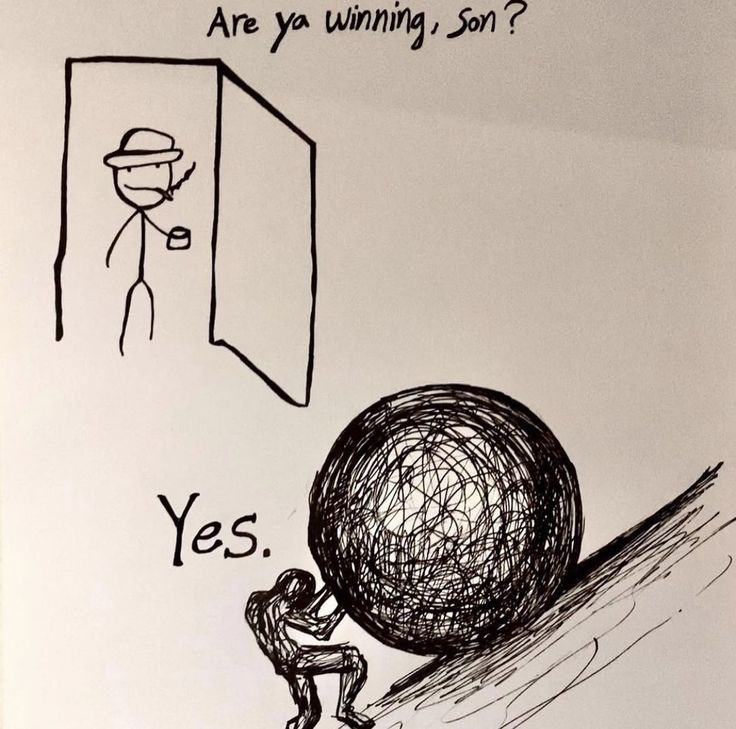 Are ya winning, son?
Yes.